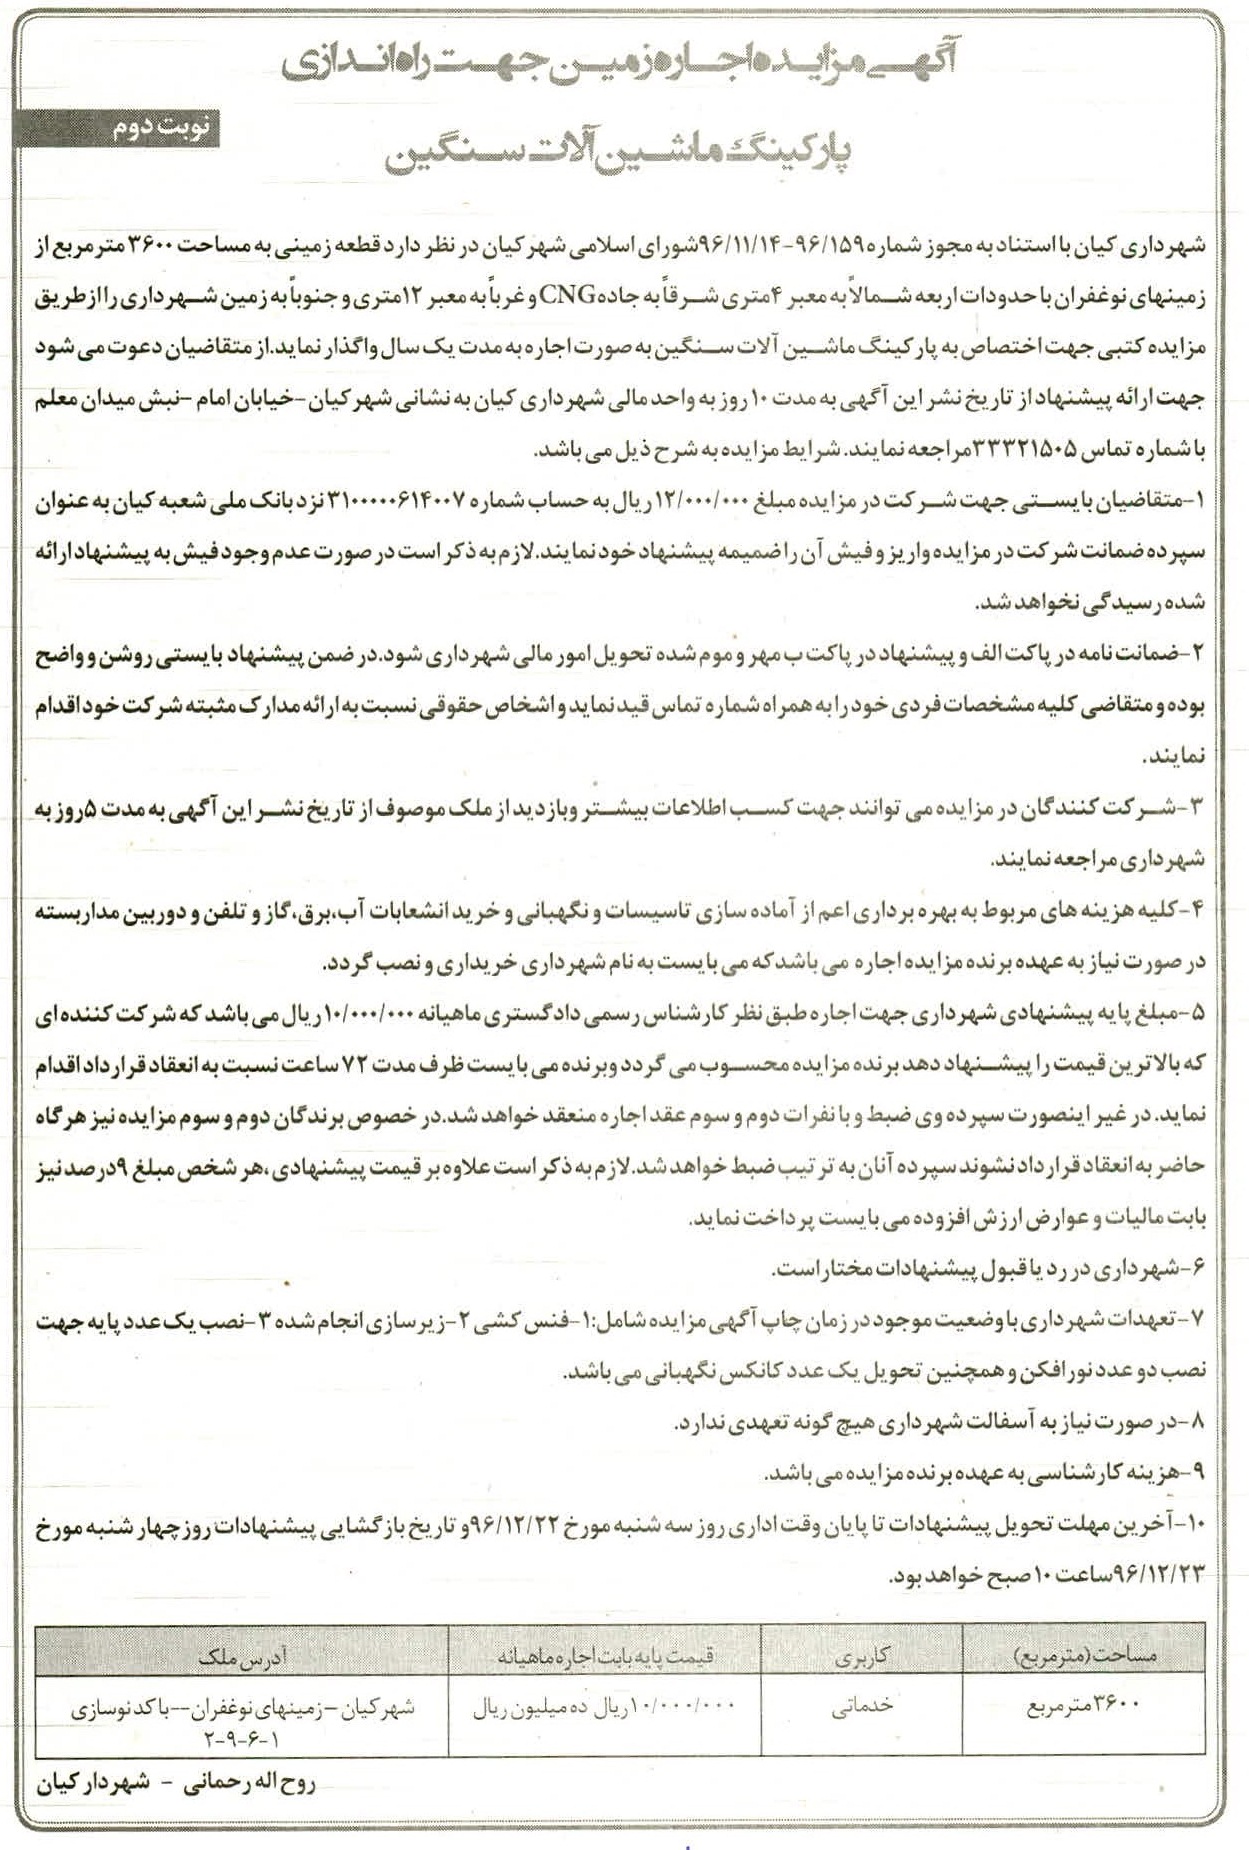 آگهی مزایده اجاره زمین جهت راه اندازی
نوبت دوم
پارکینگ ماشین آلات سنگین
شهرداری کیان با استناد به مجوز شماره ۹۶/۱۵۹-۹۶/۱۱/۱۴شورای اسلامی شهر کیان در نظر دارد قطعه زمینی به مساحت ۳۶۰۰ مترمربع از
زمینهای نوغفران با حدودات اربعه شمالاً به معبر ۴متری شرقاً به جاده CNG و غرباً به معبر ۱۲متری و جنوباً به زمین شهرداری را از طریق
مزایده کتبی جهت اختصاص به پارکینگ ماشین آلات سنگین به صورت اجاره به مدت یک سال واگذار نماید.از متقاضیان دعوت می شود
جهت ارائه پیشنهاد از تاریخ نشر این آگهی به مدت ۱۰ روز به واحد مالی شهرداری کیان به نشانی شهر کیان-خیابان امام -نبش میدان معلم
با شماره تماس ۳۳۳۲۱۵۰۵مراجعه نمایند. شرایط مزایده به شرح ذیل می باشد.
۱-متقاضیان بایستی جهت شرکت در مزایده مبلغ ۱۲/۰۰۰/۰۰۰ریال به حساب شماره ۳۱۰۰۰۰۰۶۱۴۰۰۷ نزد بانک ملی شعبه کیان به عنوان
سپرده ضمانت شرکت در مزایده واریز و فیش آن را ضمیمه پیشنهاد خود نمایند.لازم به ذکر است در صورت عدم وجود فیش به پیشنهاد ارائه
شده رسیدگی نخواهد شد.
۲-ضمانت نامه در پاکت الف و پیشنهاد در پاکت ب مهر و موم شده تحویل امور مالی شهرداری شود.در ضمن پیشنهاد بایستی روشن و واضح
بوده و متقاضی کلیه مشخصات فردی خود را به همراه شماره تماس قید نماید و اشخاص حقوقی نسبت به ارائه مدارک مثبته شرکت خود اقدام
نمایند.
۳-شرکت کنندگان در مزایده می توانند جهت کسب اطلاعات بیشتر وبازدید از ملک موصوف از تاریخ نشر این آگهی به مدت ۵روز به
شهرداری مراجعه نمایند.
۴-کلیه هزینه های مربوط به بهره برداری اعم از آماده سازی تاسیسات و نگهبانی و خرید انشعابات آب،برق،گاز و تلفن و دوربین مداربسته
در صورت نیاز به عهده برنده مزایده اجاره می باشد که می بایست به نام شهرداری خریداری و نصب گردد.
۵-مبلغ پایه پیشنهادی شهرداری جهت اجاره طبق نظر کارشناس رسمی دادگستری ماهیانه ۱۰/۰۰۰/۰۰۰ریال می باشد که شرکت کننده ای
که بالاترین قیمت را پیشنهاد دهد برنده مزایده محسوب می گردد وبرنده می بایست ظرف مدت ۷۲ ساعت نسبت به انعقاد قرارداد اقدام
نماید. در غیر اینصورت سپرده وی ضبط و با نفرات دوم و سوم عقد اجاره منعقد خواهد شد.در خصوص برندگان دوم و سوم مزایده نیز هر گاه
حاضر به انعقاد قرارداد نشوند سپرده آنان به ترتیب ضبط خواهد شد.لازم به ذکر است علاوه بر قیمت پیشنهادی ،هر شخص مبلغ ۹درصد نیز
بابت مالیات و عوارض ارزش افزوده می بایست پرداخت نماید.
۶-شهرداری در رد یا قبول پیشنهادات مختار است.
۷-تعهدات شهرداری با وضعیت موجود در زمان چاپ آگهی مزایده شامل:۱-فنس کشی ۲-زیرسازی انجام شده ۳-نصب یک عدد پایه جهت
نصب دو عدد نورافکن و همچنین تحویل یک عدد کانکس نگهبانی می باشد.
۸-در صورت نیاز به آسفالت شهرداری هیچ گونه تعهدی ندارد.
۹-هزینه کارشناسی به عهده برنده مزایده می باشد.
۱۰-آخرین مهلت تحویل پیشنهادات تا پایان وقت اداری روز سه شنبه مورخ ۹۶/۱۲/۲۲و تاریخ بازگشایی پیشنهادات روز چهارشنبه مورخ
۹۶/۱۲/۲۳ساعت ۱۰ صبح خواهد بود.
مساحت(مترمربع) کاربری قیمت پایه بابت اجاره ماهیانه آدرس ملک
۳۶۰۰مترمربع خدماتی ۱۰/۰۰۰/۰۰۰ریال ده میلیون ریال شهر کیان -زمینهای نوغفران--با کد نوسازی
۲-۹-۶-۱
روح اله رحمانی - شهردار کیان